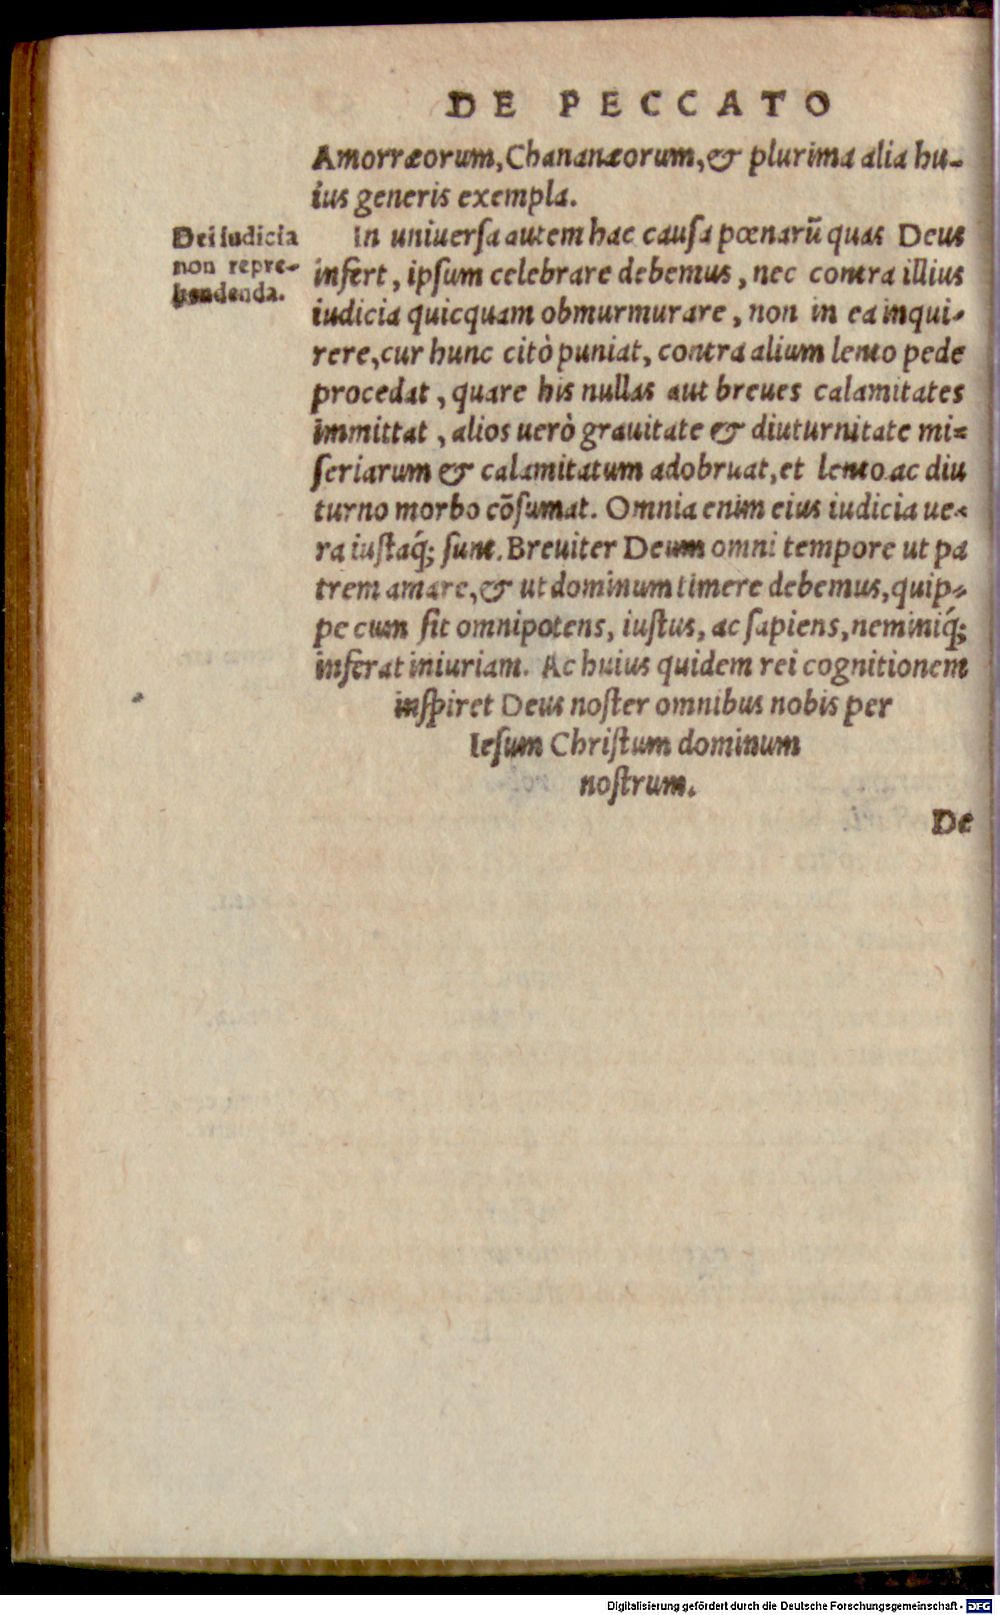 DE PECCATO
Amorræorum, Chananæorum, & plurima alia hu-
ius generis exempla.
Dei iudicia
non repre-
hendenda.
In uniuersa autem hac causa pœnarũ quas Deus
infert, ipsum celebrare debemus, nec contra illius
iudicia quicquam obmurmurare, non in ea inqui-
rere, cur hunc citò puniat, contra alium lento pede
procedat, quare his nullas aut breues calamitates
immittat, alios uerò grauitate & diuturnitate mi-
seriarum & calamitatum adobruat, et lento ac diu
turno morbo cõsumat. Omnia enim eius iudicia ue-
ra iustaq́; sunt. Breuiter Deum omni tempore ut pa
trem amare, & ut dominum timere debemus, quip-
pe cum sit omnipotens, iustus, ac sapiens, neminiq́;
inferat iniuriam. Ac huius quidem rei cognitionem
inspiret Deus noster omnibus nobis per
Iesum Christum dominum
nostrum.
De
Digitalisierung gefördert durch die Deutsche Forschungsgemeinschaft - DFG